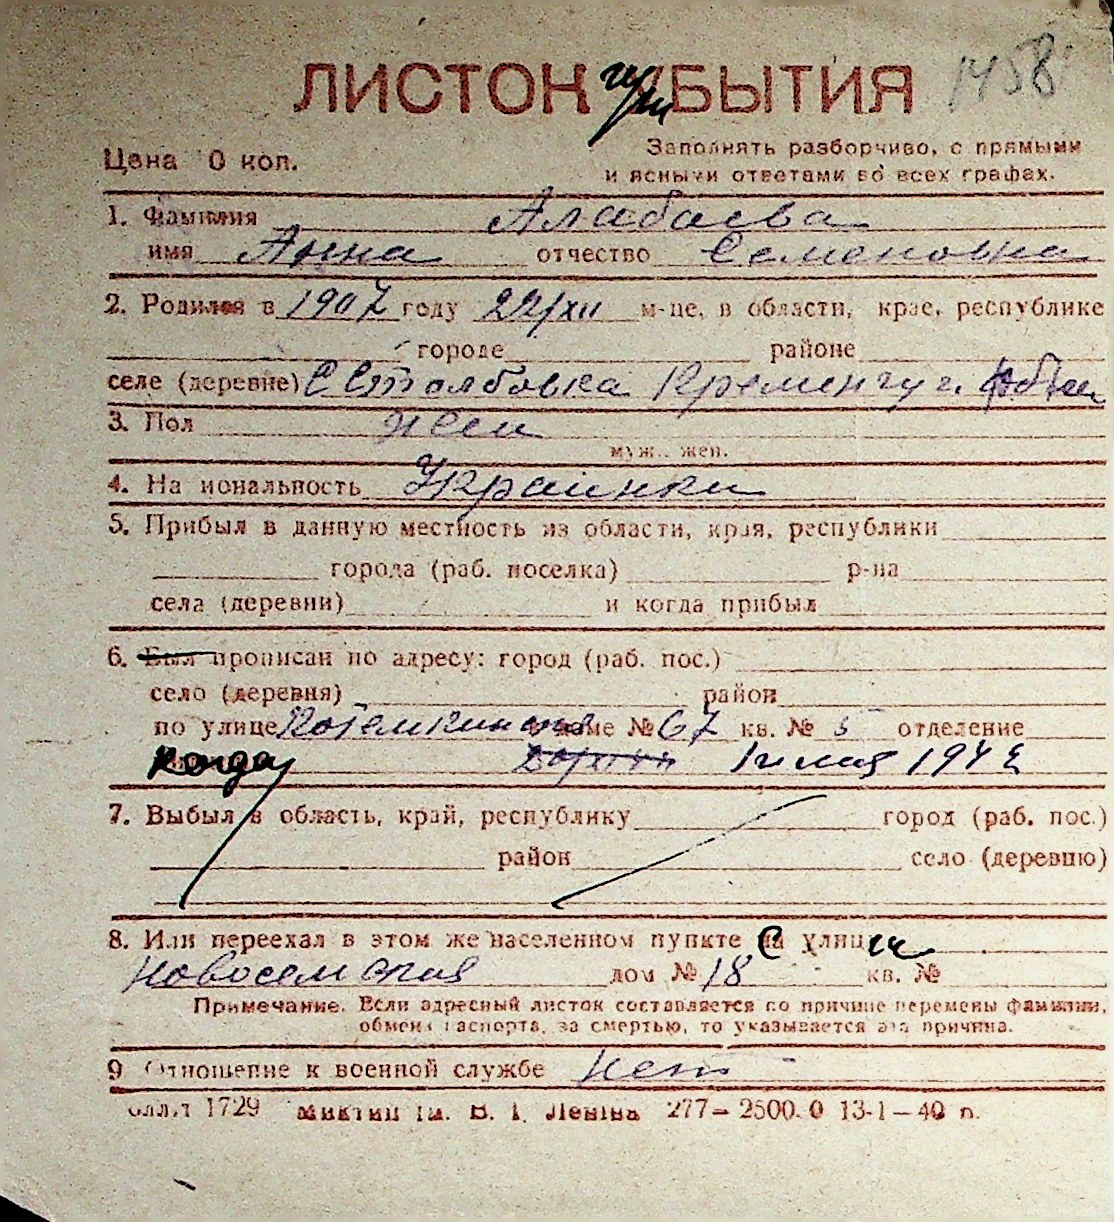 1458
ЛИСТОК при БЫТИЯ
Цена 0 коп.
Заполнять разборчиво, с прямыми
и ясными ответами во всех графах.
1. Фамилия Алабаева
имя Анна отчество Семеновна
2. Родился в 1907 году 22/XII м-це, в области, крае, республике
городе районе
селе (деревне) С Столбовка Кременчуг.
3. Пол жен
муж. жен.
4. Национальность Украинка
5. Прибыл в данную местность из области, края, республики
города (раб. поселка) р-на
села (деревни) и когда прибыл
6. Был прописан по адресу: город (раб. пос.)
село (деревня) район
по улице Потемкинская доме № 67 кв. № 5 отделение
когда 1 июля 1942
7. Выбыл в область, край, республику город (раб. пос.)
район село (деревню)
8. Или переехал в этом же населенном пункте с улицы
Новосельская дом № 18 кв. №
Примечание. Если адресный листок составляется по причине перемены фамилии,
обмена паспорта, за смертью, то указывается эта причина.
9 Отношение к военной службе Нет
1729 ім. В. І. Леніна 277—2500.0 13-1—40 р.